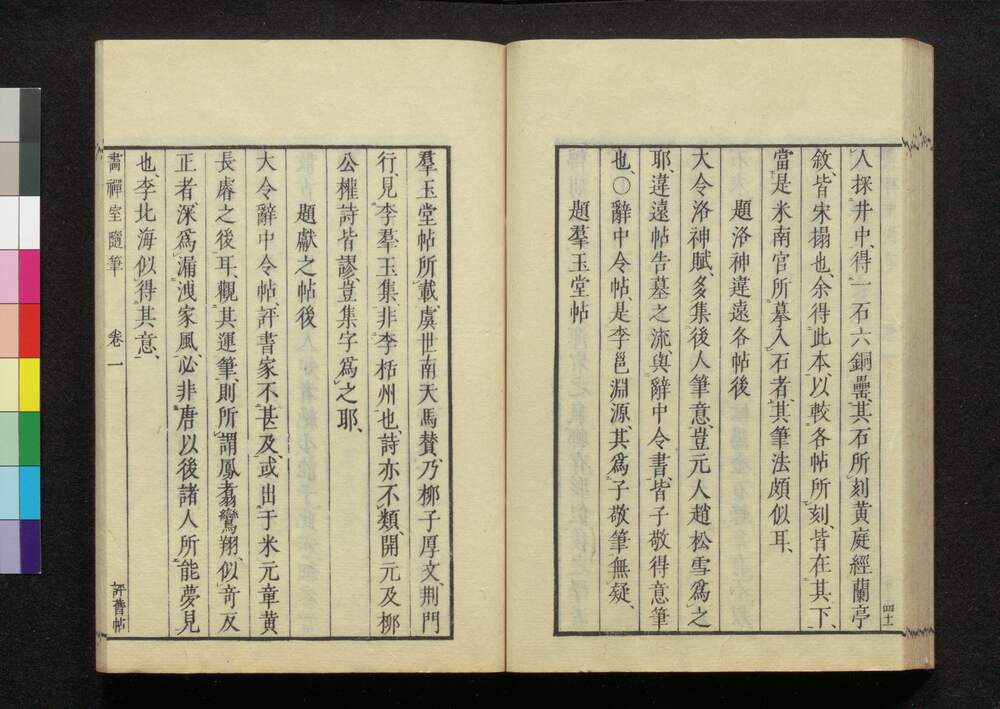 人探井中、得一石六銅罍、其石所刻黃庭經蘭亭
敘、皆宋搨也、余得此本、以較各帖所刻、皆在其下、
當是米南宮所摹入石者、其筆法頗似耳、
題洛神違遠各帖後
大令洛神賦、多集後人筆意、豈元人趙松雪爲之
耶、違遠帖告墓之流、與辭中令書、皆子敬得意筆
也、〇辭中令帖、是李邕淵源、其爲子敬筆無疑、
題羣玉堂帖
羣玉堂帖所載、虞世南天馬贊、乃柳子厚文、荆門
行、見李羣玉集、非李栝州也、詩亦不類、開元及柳
公權詩皆謬、豈集字爲之耶、
題獻之帖後
大令辭中令帖、評書家不甚及、或出于米元章黃
長睿之後耳、觀其運筆、則所謂鳳翥鸞翔、似奇反
正者、深爲漏洩家風、必非唐以後諸人所能夢見
也、李北海似得其意、
畫禪室隨筆 卷一 評舊帖